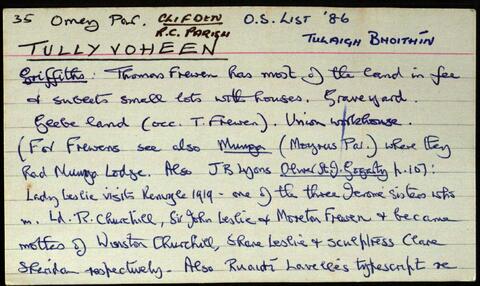 35 Omey Par. CLIFDEN O.S. LIST '86
R.C. PARISH
TULLYVOHEEN TULAIGH BHOITHÍN
Griffiths: Thomas Frewen has most of the land in fee
& sublets small lots with houses. Graveyard.
Glebe land (occ. T. Frewen). Union workhouse.
(For Frewens see also Munga (Moyrus Par.) where they
had Munga Lodge. Also J.B. Lyons Oliver St. J. Gogarty p.107:
Lady Leslie visits Renvyle 1919 - one of the three Jerome sisters who
m. Ld. R. Churchill, Sir John Leslie & Moreton Frewen & became
mothers of Winston Churchill, Shane Leslie & sculptress Clare
Sheridan respectively. Also Ruaidí Lavelle's typescript re